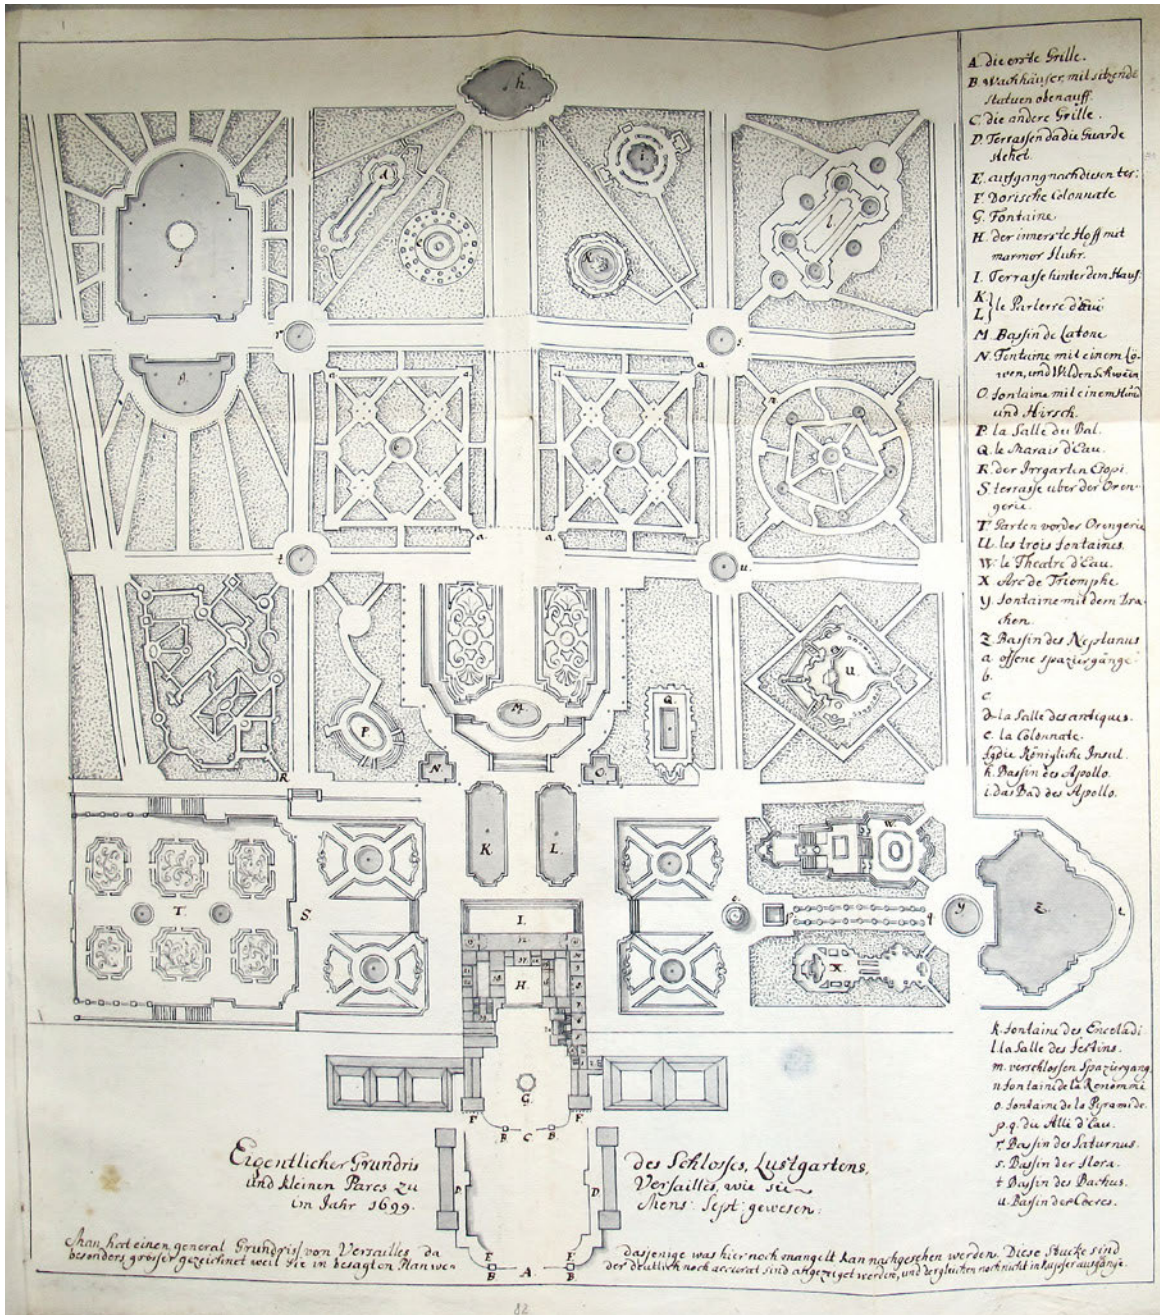 A. die erste Grille.
B. Wachhäuser, mit sitzende
statuen oben auff.
C. die andere Grille.
D. Terrassen da die Guarde
stehet.
E. auffgang nach diesen ter:
F. Dorische Colonnate
G. Fontaine
H. der innerste Hoff mit
marmor fluhr.
I. Terrasse hinter dem Hauß.
K.
L. } le Parterre d'Eau
M. Bassin de Latone
N. Fontaine mit einem Lö-
wen, und Wilden Schwein
O. fontaine mit einem Hund
und Hirsch.
P. la Salle du Bal.
Q. le Marais d'Eau.
R. der Irrgarten Esopi.
S. terrasse über der Oren-
gerie.
T. Garten vor der Orengerie
U. les trois fontaines.
W. le Theatre d'Eau.
X Arc de Triomphe
Y. fontaine mit dem Dra-
chen.
Z. Bassin des Neptunus
a. offene spaziergänge
b.
c
d. la Salle des antiques.
e. la Colonnate.
f g die Königliche Insul.
h. Bassin des Apollo.
i. das Bad des Apollo.
k. fontaine des Enceladi.
l. la Salle des festins.
m. verschlossen Spaziergang
n fontaine de la Renommé
o. fontaine de la Piramide.
p. q. die Allé d'Eau.
r. Bassin des Saturnus.
s. Bassin der Flora.
t Bassin des Bachus.
u. Bassin der Ceres.
Eigentlicher Grundris des Schlosses, Lustgartens,
und kleinen Parcs zu Versailles, wie sie
im Jahr 1699. Mens: Sept: gewesen.
Man hat einen general Grundris von Versailles da dasjenige was hier noch mangelt kan nachgesehen werden. Diese Stucke sind
besonders grösser gezeichnet weil sie in besagten Plan weder deutlich noch accurat sind angezeiget worden, und dergleichen noch nicht in Kupffer
82